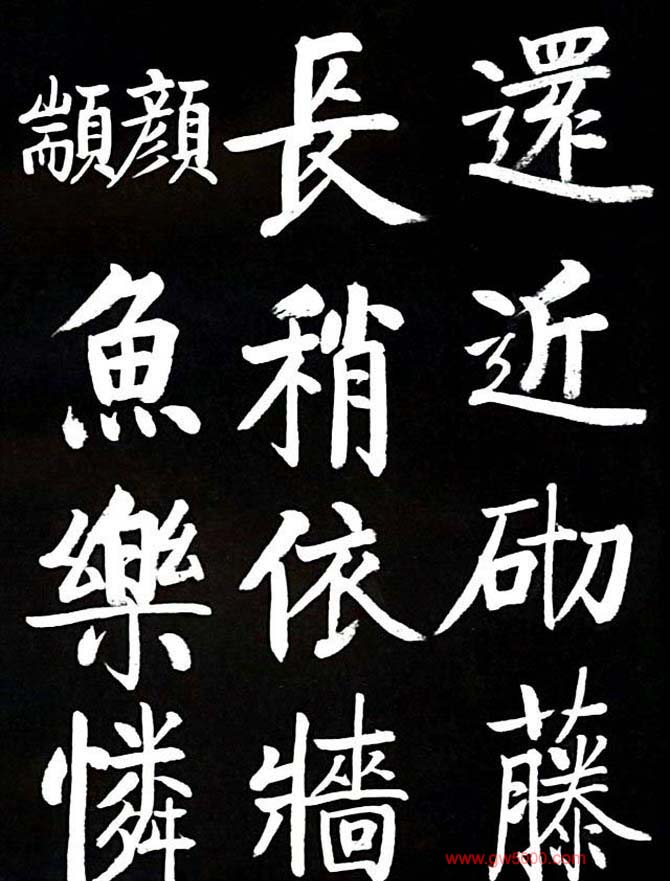 還近砌藤
長稍依牆
顔顓魚樂憐
www.gw5200.com